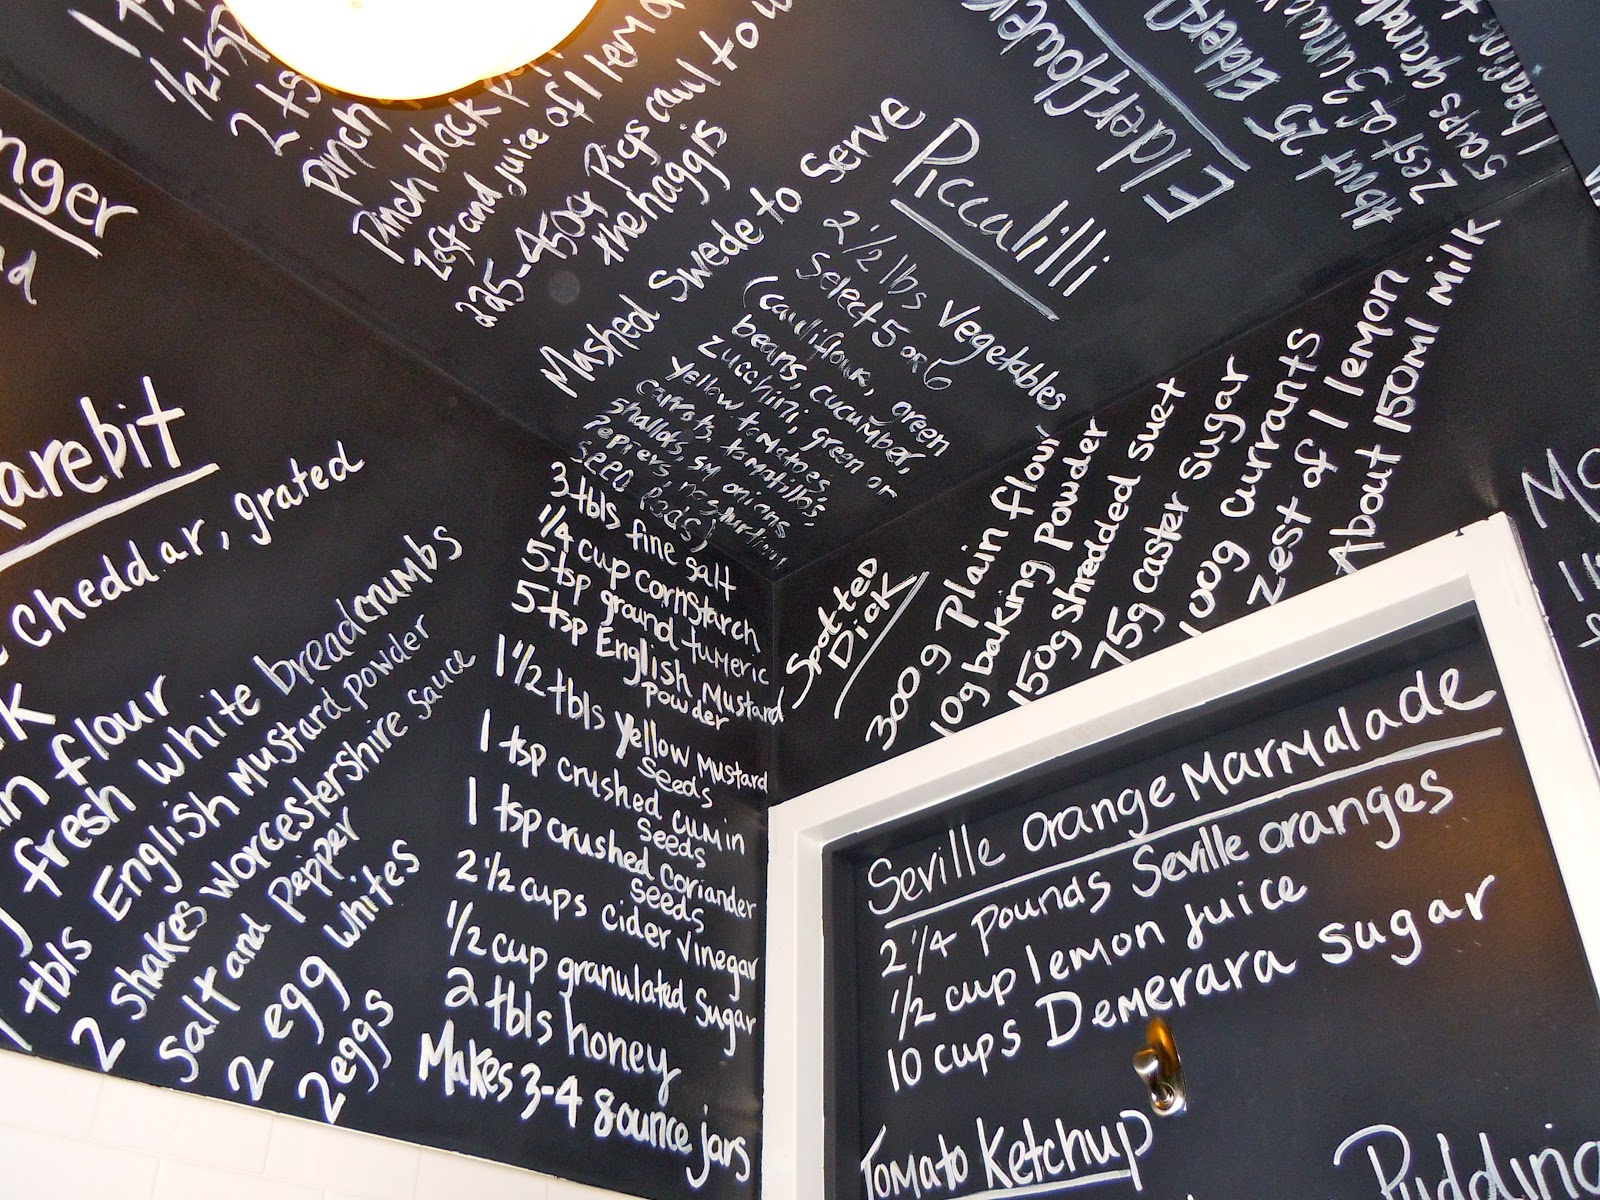 nger
arebit
Cheddar, grated
flour
fresh white breadcrumbs
tbls English Mustard Powder
2 shakes Worcestershire sauce
Salt and Pepper
2 egg whites
2 eggs
1/2 tsp
Pinch
Pinch black
Zest and juice of 1 lemon
225-450g Pigs caul to
the haggis
Mashed Swede to Serve
Piccalilli
2 1/2 lbs vegetables
Select 5 or 6
(cauliflour, green
beans, cucumber,
zucchini, green or
yellow tomatoes
carrots, tomatillo's,
shallots, sm onions
seed pods)
3 tbls fine salt
1/4 cup cornstarch
5 tsp ground tumeric
5 tsp English Mustard
Powder
1 1/2 tbls Yellow Mustard
Seeds
1 tsp crushed cumin
Seeds
1 tsp crushed coriander
Seeds
2 1/2 cups cider vinegar
1/2 cup granulated Sugar
2 tbls honey
Makes 3-4 8 ounce jars
Elderflower
About 25 Elderfl
Zest of 3
5 cups
Spotted
Dick
300g Plain flour
10g baking Powder
150g Shredded suet
75g caster sugar
100g currants
Zest of 1 lemon
About 150ml milk
Seville Orange Marmalade
2 1/4 pounds Seville oranges
1/2 cup lemon juice
10 cups Demerara sugar
Tomato Ketchup
Pudding